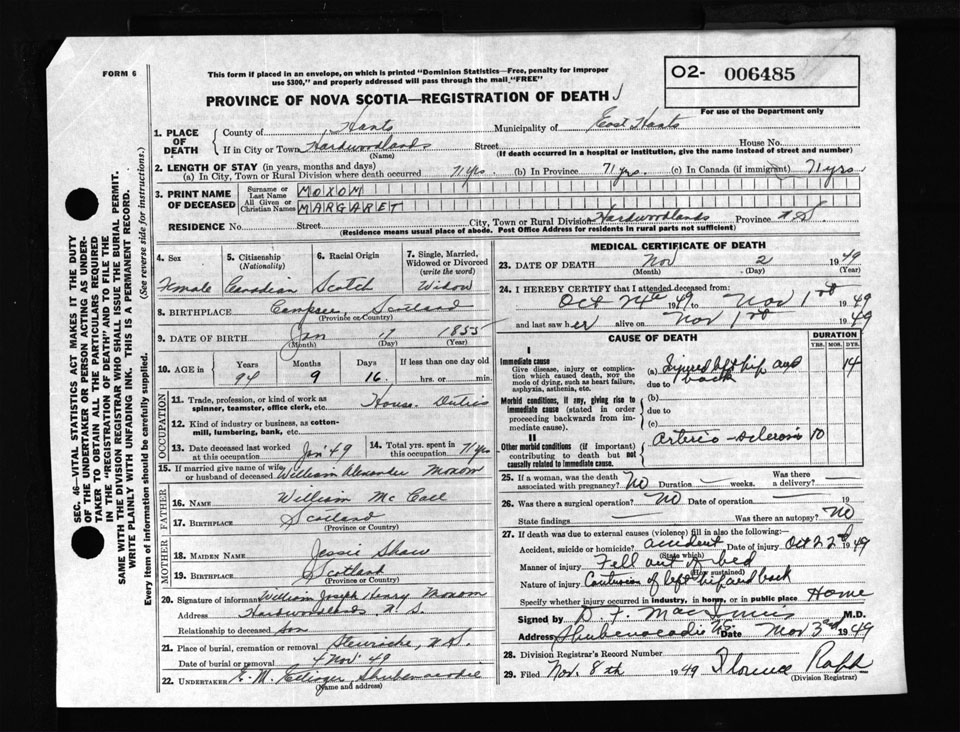 FORM 6
This form if placed in an envelope, on which is printed "Dominion Statistics—Free, penalty for improper
use $300," and properly addressed will pass through the mail "FREE"
O2- 006485
For use of the Department only
PROVINCE OF NOVA SCOTIA—REGISTRATION OF DEATH
1. PLACE OF DEATH
County of Hants Municipality of East Hants
If in City or Town Hardwoodlands Street House No.
(Name) (If death occurred in a hospital or institution, give the name instead of street and number)
2. LENGTH OF STAY (in years, months and days)
(a) In City, Town or Rural Division where death occurred 71 yrs. (b) In Province 71 yrs. (c) In Canada (if immigrant) 71 yrs.
3. PRINT NAME OF DECEASED
Surname or Last Name MOXOM
All Given or Christian Names MARGARET
RESIDENCE No. Street City, Town or Rural Division Hardwoodlands Province N.S.
(Residence means usual place of abode. Post Office Address for residents in rural parts not sufficient)
4. Sex
Female
5. Citizenship (Nationality)
Canadian
6. Racial Origin
Scotch
7. Single, Married, Widowed or Divorced (write the word)
Widow
8. BIRTHPLACE Scotland
(Province or Country)
9. DATE OF BIRTH Jan 17 1855
(Month) (Day) (Year)
10. AGE in Years Months Days If less than one day old
94 9 16 hrs. or min.
OCCUPATION
11. Trade, profession, or kind of work as
spinner, teamster, office clerk, etc. House Duties
12. Kind of industry or business, as cotton-
mill, lumbering, bank, etc.
13. Date deceased last worked at this occupation Jan '49
14. Total yrs. spent in this occupation 71 yrs
15. If married give name of wife
or husband of deceased William Alexander Moxom
FATHER
16. NAME William Mc Call
17. BIRTHPLACE Scotland
(Province or Country)
MOTHER
18. MAIDEN NAME Jessie Shaw
19. BIRTHPLACE Scotland
(Province or Country)
20. Signature of informant William Joseph Henry Moxom
Address Hardwoodlands N.S.
Relationship to deceased son
21. Place of burial, cremation or removal N.S.
Date of burial or removal 4 Nov '49
22. UNDERTAKER E. M. Shubenacadie
(Name and address)
MEDICAL CERTIFICATE OF DEATH
23. DATE OF DEATH Nov 2 1949
(Month) (Day) (Year)
24. I HEREBY CERTIFY that I attended deceased from:
Oct 24th 1949 to Nov 1st 1949
and last saw her alive on Nov 1st 1949
CAUSE OF DEATH
DURATION
YRS. MOS. DYS.
I
Immediate cause
Give disease, injury or complica-
tion which caused death, NOT the
mode of dying, such as heart failure,
asphyxia, asthenia, etc.
(a) Injured left hip and back 14
due to
Morbid conditions, if any, giving rise to
immediate cause (stated in order
proceeding backwards from im-
mediate cause).
(b)
due to
(c)
II
Other morbid conditions (if important)
contributing to death but not
causally related to immediate cause.
Arterio-sclerosis 10
25. If a woman, was the death
associated with pregnancy? No Duration weeks. Was there a delivery?
26. Was there a surgical operation? No Date of operation 19
State findings Was there an autopsy? No
27. If death was due to external causes (violence) fill in also the following:
Accident, suicide or homicide? accident Date of injury Oct 22nd 1949
(State which)
Manner of injury Fell out of bed
(How sustained)
Nature of injury Contusion of left hip and back
Specify whether injury occurred in industry, in home, or in public place Home
Signed by D. F. MacInnis M.D.
Address Shubenacadie N.S. Date Nov 3rd 1949
28. Division Registrar's Record Number
29. Filed Nov. 8th 1949 Florence
(Division Registrar)
SEC. 46—VITAL STATISTICS ACT MAKES IT THE DUTY
OF THE UNDERTAKER OR PERSON ACTING AS UNDER-
TAKER TO OBTAIN ALL THE PARTICULARS REQUIRED
IN THE "REGISTRATION OF DEATH" AND TO FILE THE
SAME WITH THE DIVISION REGISTRAR WHO SHALL ISSUE THE BURIAL PERMIT.
WRITE PLAINLY WITH UNFADING INK. THIS IS A PERMANENT RECORD.
Every item of information should be carefully supplied. (See reverse side for instructions.)